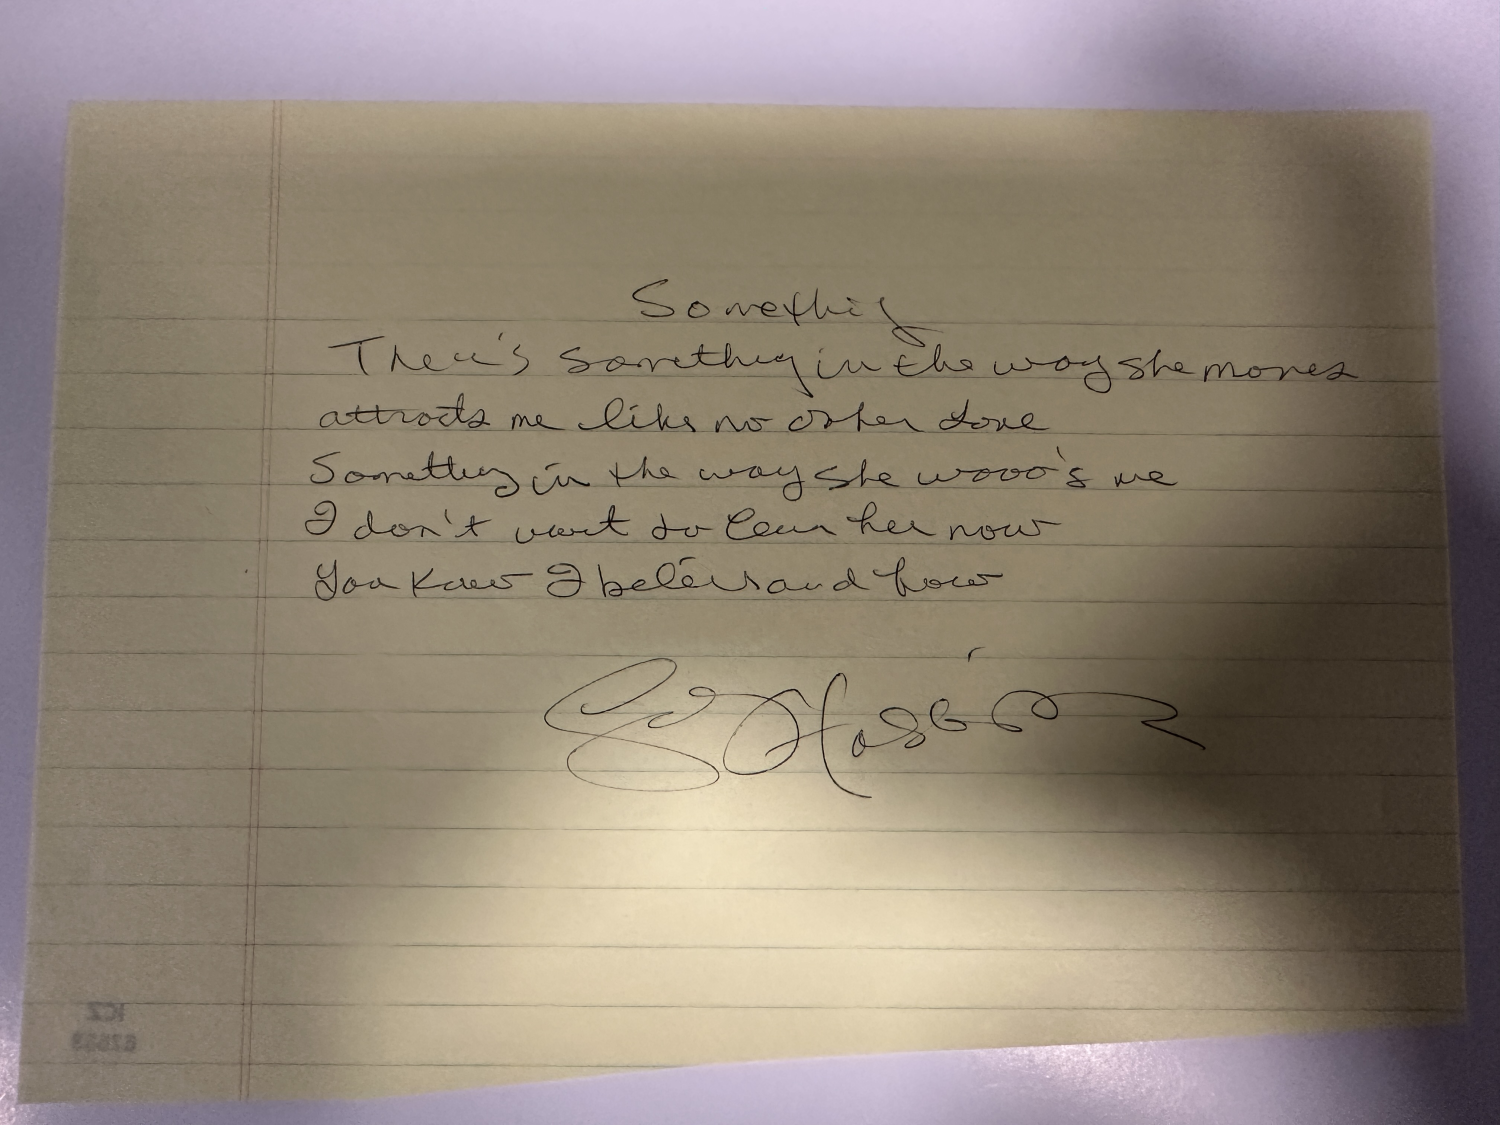 Something
There's Something in the way she moves
attracts me like no other Love
Something in the way she wooo's me
I don't want to leave her now
You know I believe and how